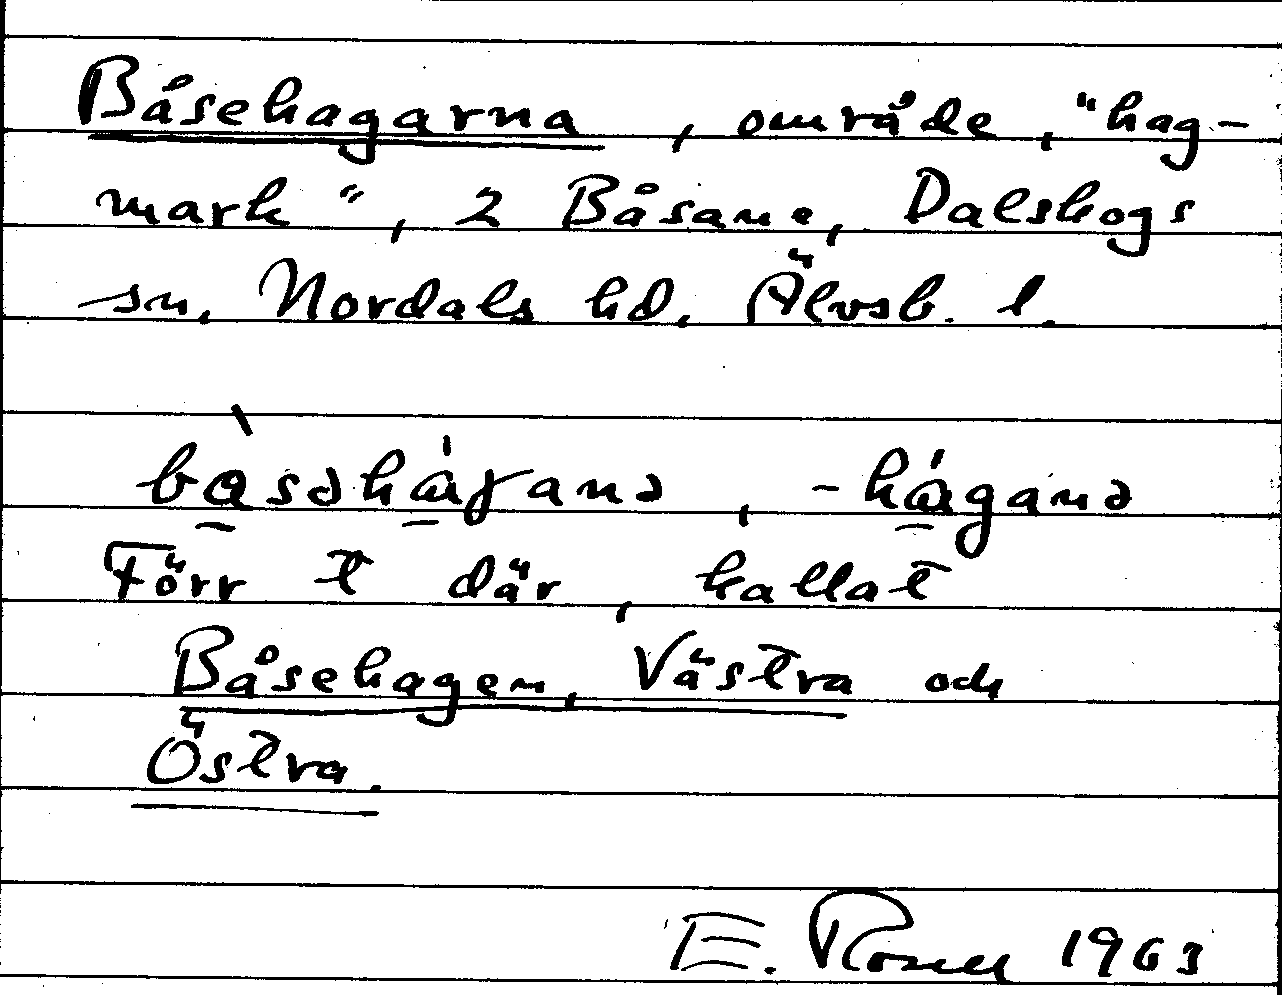 Båsehagarna, område, "hag-
mark", 2 Båsane, Dalskogs
sn, Nordals hd, Älvsb. l.
bå̀səhá̱ɣanə, -há̱ganə
Förr t där, kallat
Båsehagen, Västra och
Östra.
E. Rosell 1963